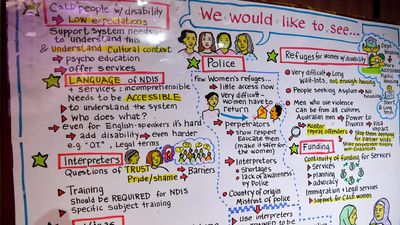 We would like to see...
CaLD people w/ disability
→ Low expectations
Support System needs
to understand this
& understand Cultural context
→ psycho education
→ offer services
LANGUAGE of NDIS
+ Services: incomprehensible
Needs to be ACCESSIBLE
to understand the system
→ Who does what?
→ even for English-speakers it's hard
→ add disability → even harder
e.g "O.T", Legal terms
Interpreters
Questions of TRUST
Pride/shame
Barriers
→ Training
should be REQUIRED for NDIS
→ Specific subject training
Police
Few Women's refuges
→ little access now
→ Very difficult -
Women have to
return
→ perpetrators
→ show respect
Educate them
(make it safer for
the women)
→ Interpreters
→ Shortages
→ Lack of awareness
by Police
→ Country of origin
Mistrust of police
→ use interpreters
Refuges for women w/ disability
→ Very difficult → Long
Wait-lots, not enough refuges
→ People seeking Asylum → No
housing
→ Men who use violence
can be from all cultures
Australian men → Power to
→ Monitor
repeat offenders
→ Divorce
→ Visa impact
→ Stop them
Public
House
Short &
Long
Stay
Funding
Continuity of funding for services
→ Services
→ planning
→ advocacy
Immigration + Legal services
→ support for CALD women